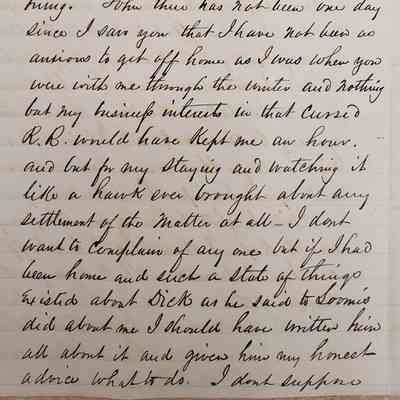 things. John there has not been one day
since I saw you that I have not been as
anxious to get off home as I was when you
were with me through the winter and nothing
but my business interests in that cursed
R.R. would have Kept me an hour.
and but for my staying and watching it
like a hawk ever brought about any
settlement of the matter at all - I dont
want to complain of any one but if I had
been home and such a state of things
Existed about Dick as he said to Loomis
did about me I should have written him
all about it and given him my honest
advice what to do. I dont suppose